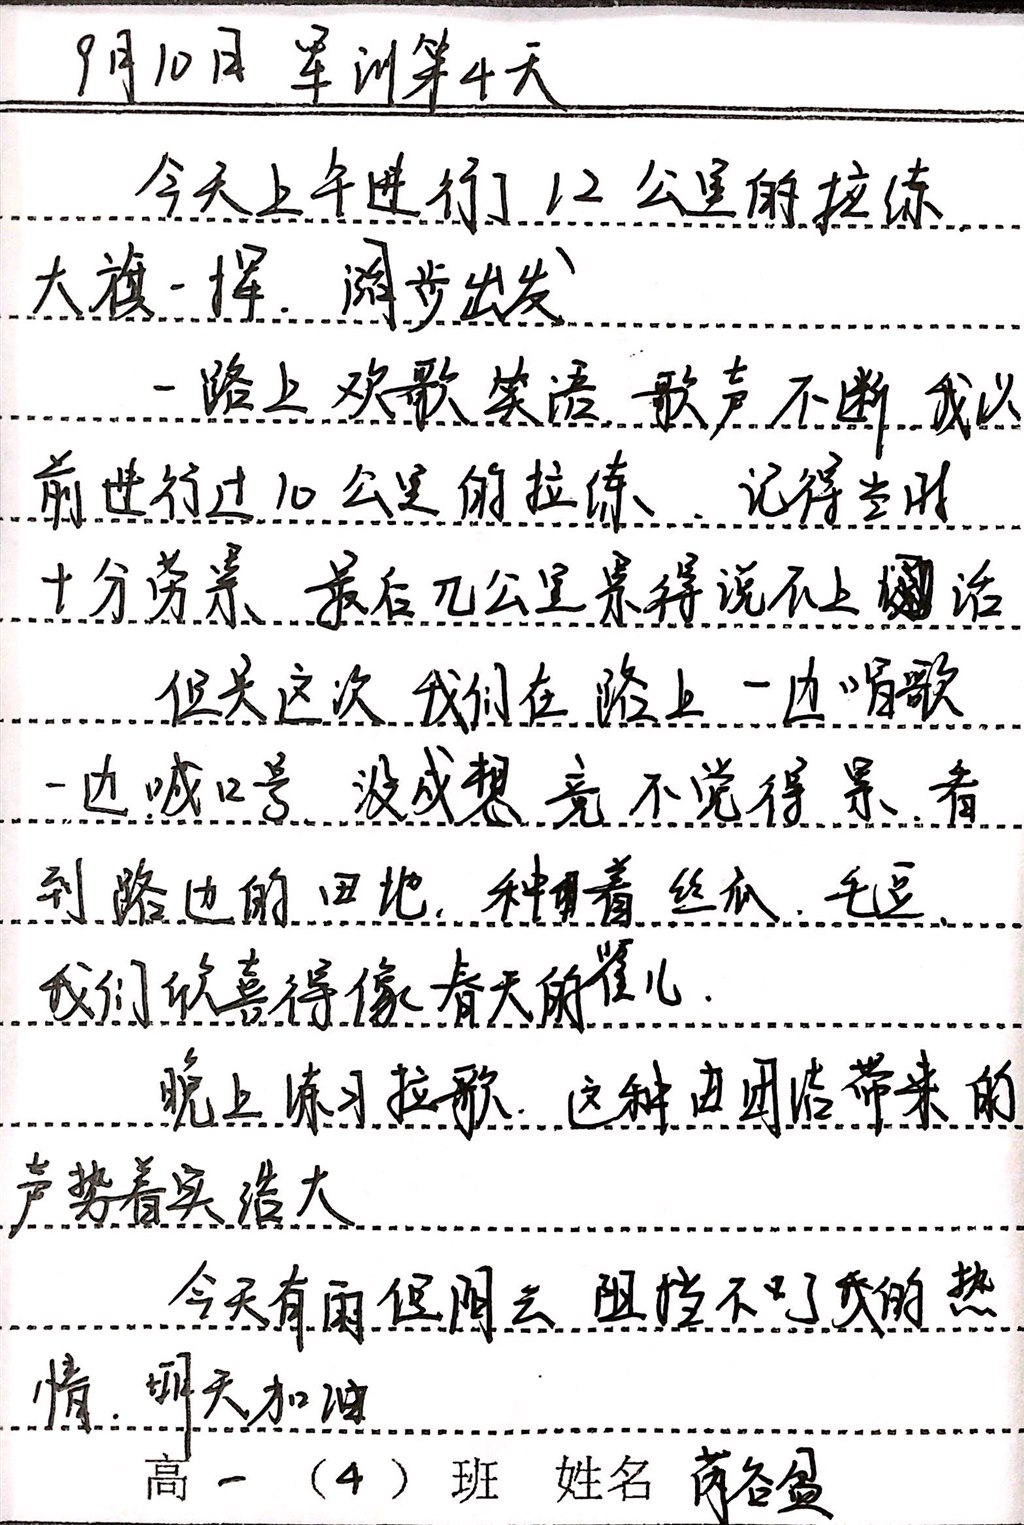 9月10日 军训第4天
今天上午进行了12公里的拉练
大旗一挥. 阔步出发
一路上欢歌笑语, 歌声不断. 我以
前进行过10公里的拉练、. 记得当时
十分劳累、最后几公里累得说不上话
但是这次 我们在路上一边唱歌
一边喊口号 没成想竟不觉得累、看
到路边的田地. 种着丝瓜、毛豆、
我们欣喜得像春天的 儿.
晚上练习拉歌. 这种由团结带来的
声势着实浩大
今天有雨但阴云 阻挡不了我的热
情. 明天加油
高一（4）班 姓名 谷盈